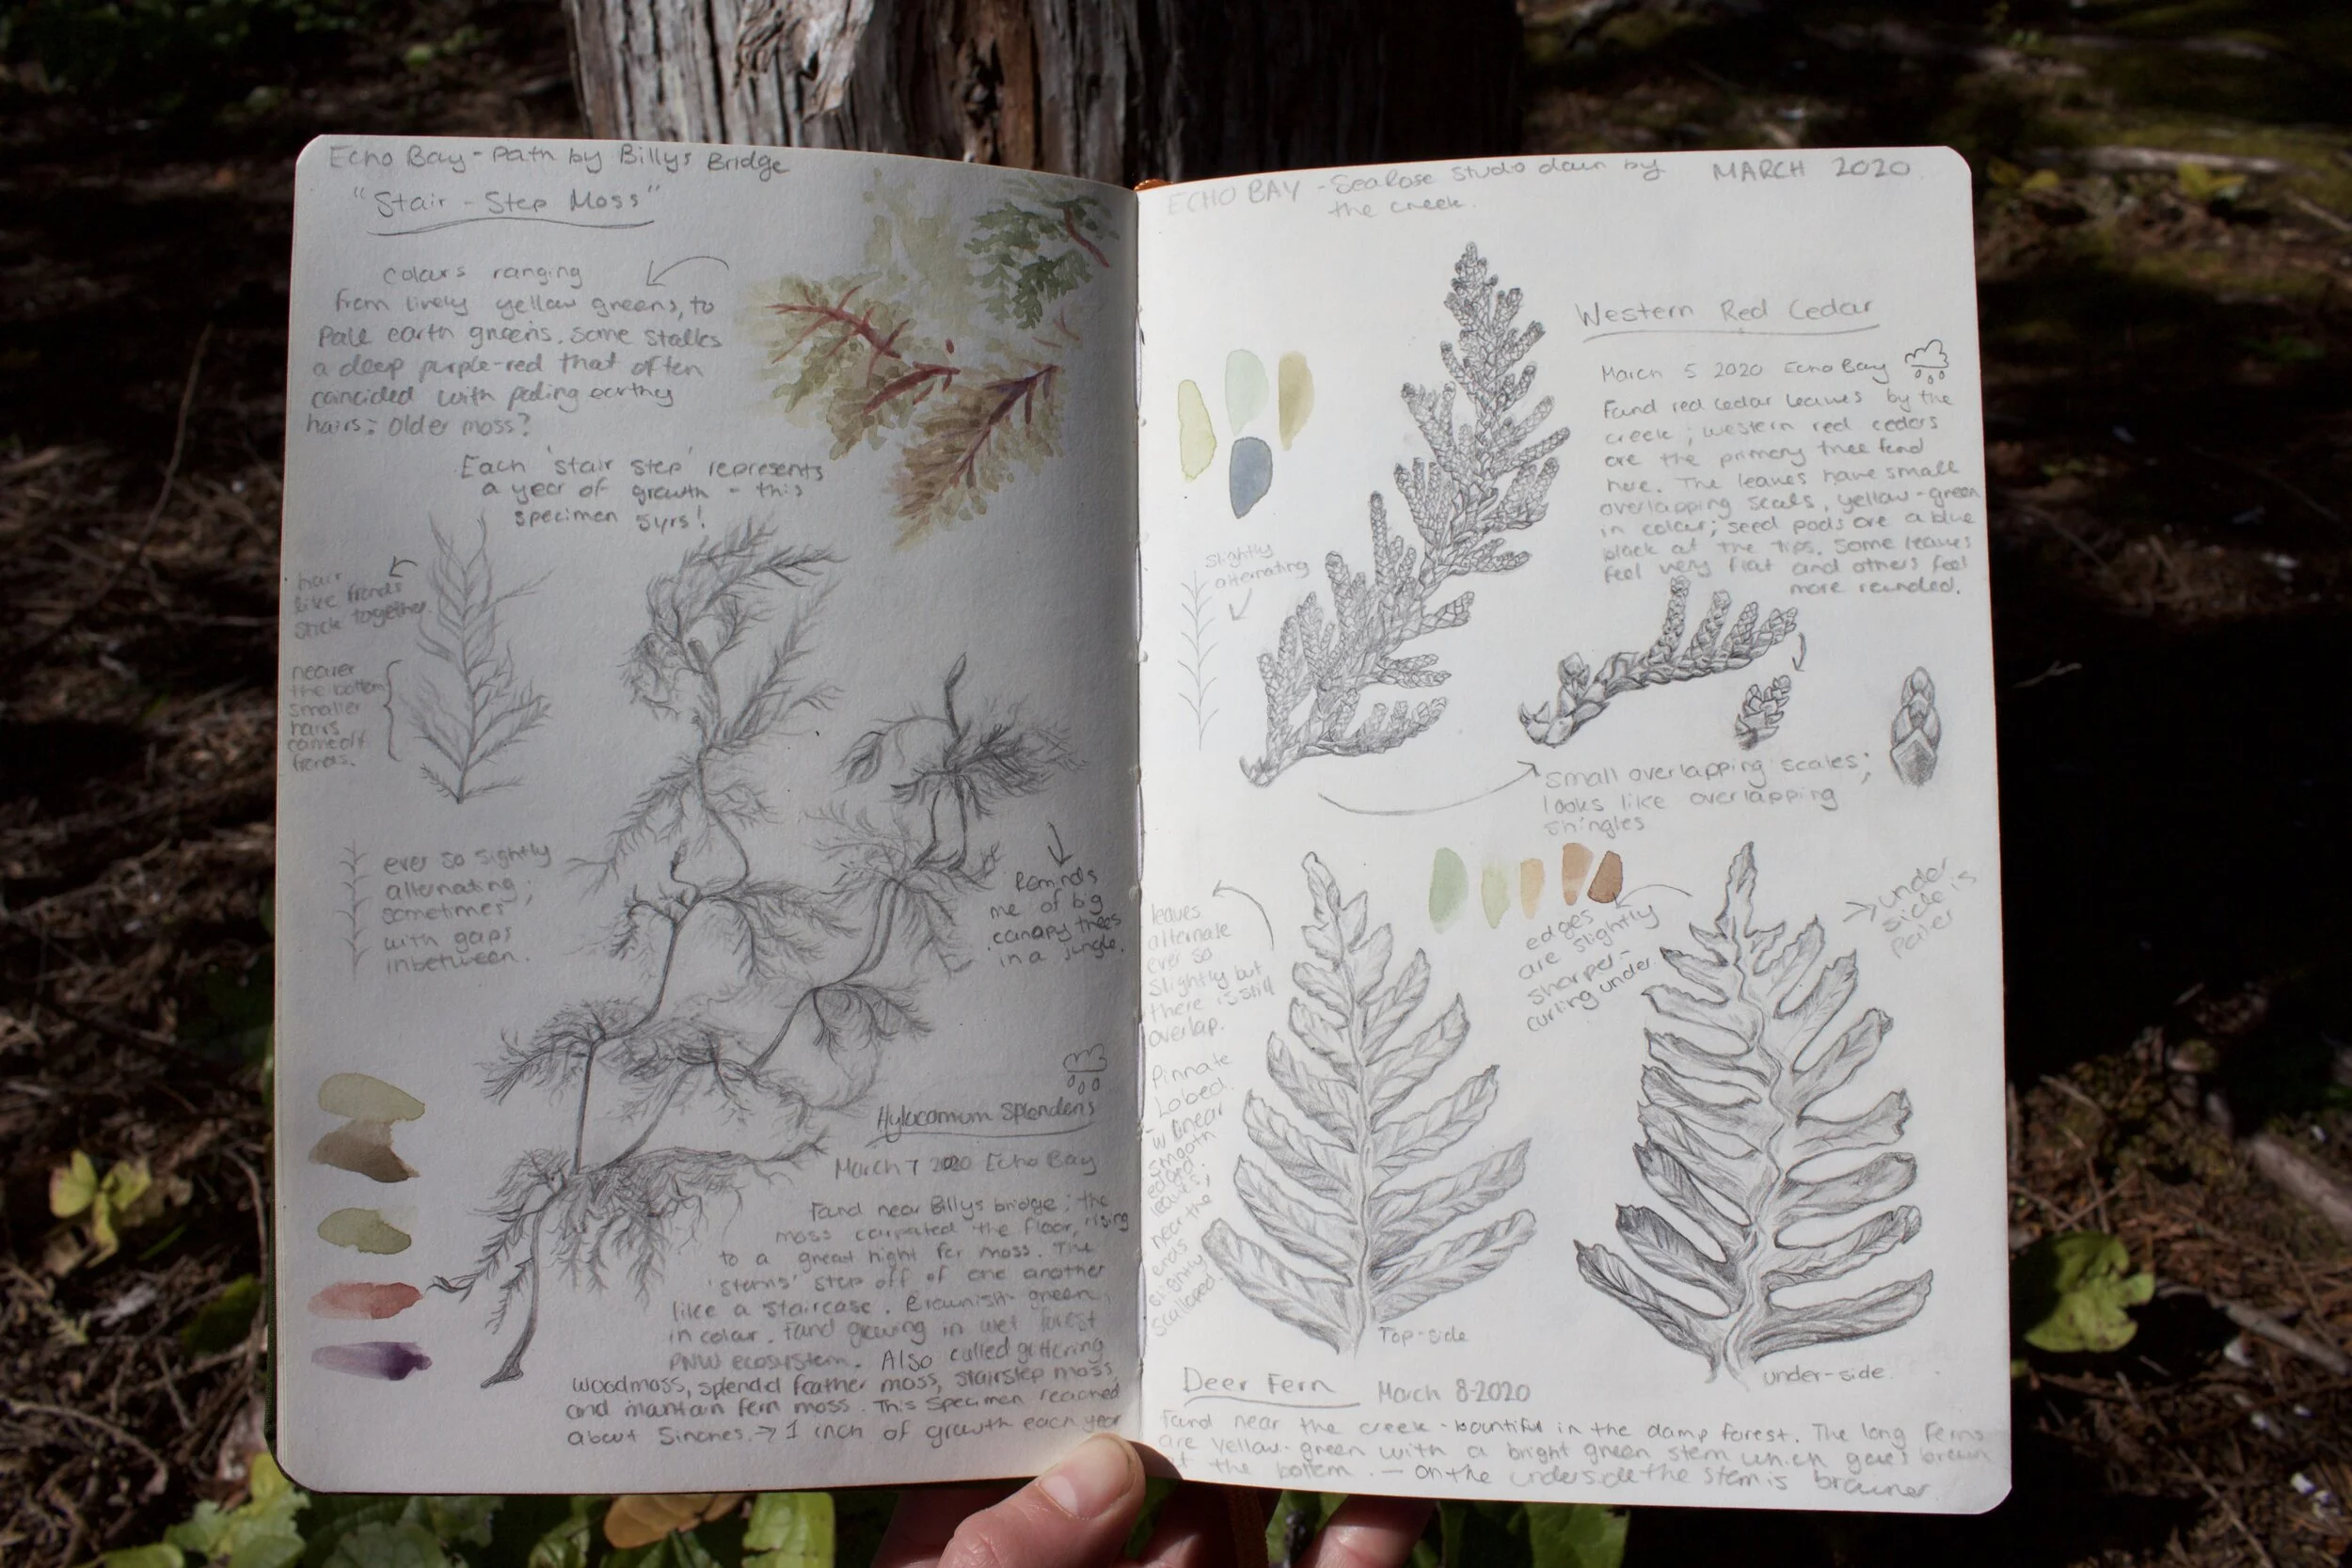 Echo Bay - Path by Billys Bridge
"Stair - Step Moss"
colours ranging
from lively yellow greens, to
pale earth greens. Some stalks
a deep purple-red that often
coincided with paling earthy
hairs; Older moss?
Each 'stair step' represents
a year of growth - this
specimen 5yrs!
hair
like fronds
stick together.
nearer
the bottom
smaller
hairs
come off
fronds.
ever so slightly
alternating;
sometimes
with gaps
inbetween.
Reminds
me of big
canopy trees
in a jungle.
Hylocomium Splendens
March 7 2020 Echo Bay
Found near Billys bridge; the
moss carpated the floor, rising
to a great hight for moss. The
'stems' step off of one another
like a staircase. Brownish green
in colour. Found growing in wet forest
PNW ecosystem. Also called glittering
woodmoss, splendid feather moss, stairstep moss,
and mantain fern moss. This specimen reached
about 5inches. → 1 inch of growth each year
ECHO BAY - SeaRose Studio down by
the creek.
MARCH 2020
Western Red Cedar
March 5 2020 Echo Bay
Found red cedar leaves by the
creek; western red cedars
are the primary tree found
here. The leaves have small
overlapping scals, yellow-green
in colour; seed pods are a blue
black at the tips. Some leaves
feel very flat and others feel
more rounded.
slightly
alternating
small overlapping scales;
looks like overlapping
shingles
leaves
alternate
ever so
slightly but
there is still
overlap.
Pinnate
Lobed.
w linear
smooth
edged
leaves;
near the
ends
slightly
scalloped.
edges
are slightly
sharper-
curling under.
under
side is
paler
Top-side
under-side.
Deer Fern March 8-2020
Found near the creek - bountiful in the damp forest. The long ferns
are yellow-green with a bright green stem which goes brown
at the bottom. — On the underside the stem is browner